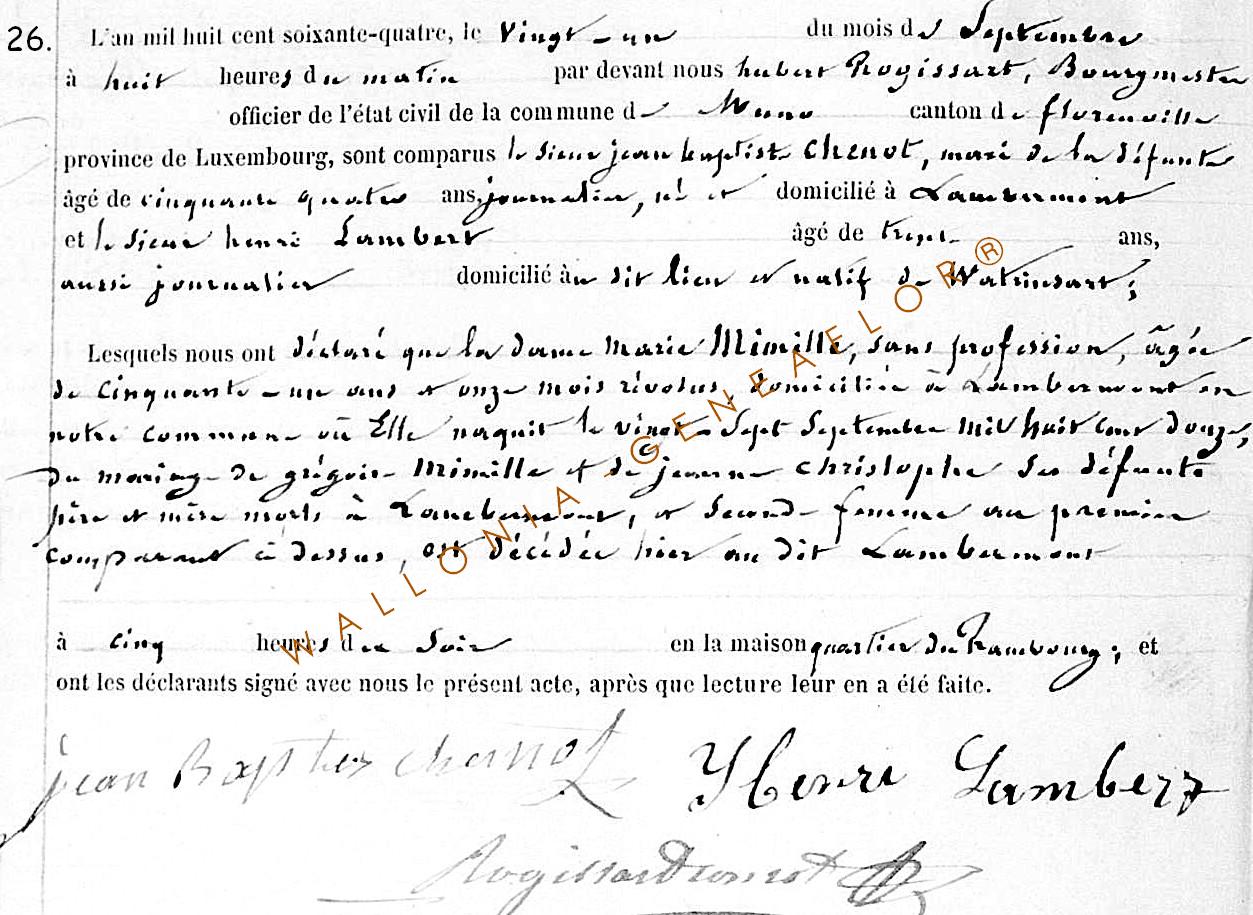 26. L'an mil huit cent soixante-quatre, le vingt-un du mois de Septembre
à huit heures du matin par devant nous hubert Rogissart, Bourgmestre
officier de l'état civil de la commune de Muno canton de florenville
province de Luxembourg, sont comparus le sieur jean baptiste Chenot, mari de la défunte
âgé de cinquante quatre ans, journalier, né et domicilié à Lambermont
et le sieur henri Lambert âgé de trente ans,
aussi journalier domicilié au dit lieu et natif de Watrinsart;
Lesquels nous ont déclaré que la dame Marie Mimille, sans profession, âgée
de cinquante-un ans et onze mois révolus, domiciliée à Lambermont en
notre commune où Elle naquit le vingt-Sept Septembre Mil huit Cent Douze,
du mariage de grégoire Mimille et de jeanne Christophe ses défunts
père et mère morts à Lambermont, et seconde femme au premier
comparant ci dessus, est décédée hier au dit Lambermont
à cinq heures du Soir en la maison quartier du Rambourg; et
ont les déclarants signé avec nous le présent acte, après que lecture leur en a été faite.
jean Baptiste chenot Henri Lambert
WALLONIA © GENEAFLOR®